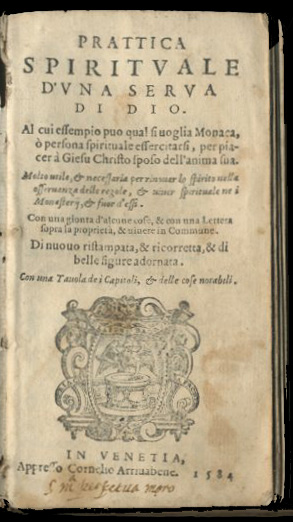 PRATTICA
SPIRITVALE
D'VNA SERVA
DI DIO.
Al cui essempio puo qual si uoglia Monaca,
ò persona spirituale essercitarsi, per pia-
cer à Giesu Christo sposo dell'anima sua.
Molto utile, & necessaria per rinouar lo spirito nella
osseruanza delle regole, & uiuer spirituale ne i
Monasterij, & fuor d'essi.
Con una gionta d'alcune cose, & con una Lettera
sopra la proprietà, & uiuere in Commune.
Di nuouo ristampata, & ricorretta, & di
belle figure adornata.
Con una Tauola de i Capitoli, & delle cose notabili.
IN VENETIA,
Appresso Cornelio Arriuabene. 1584